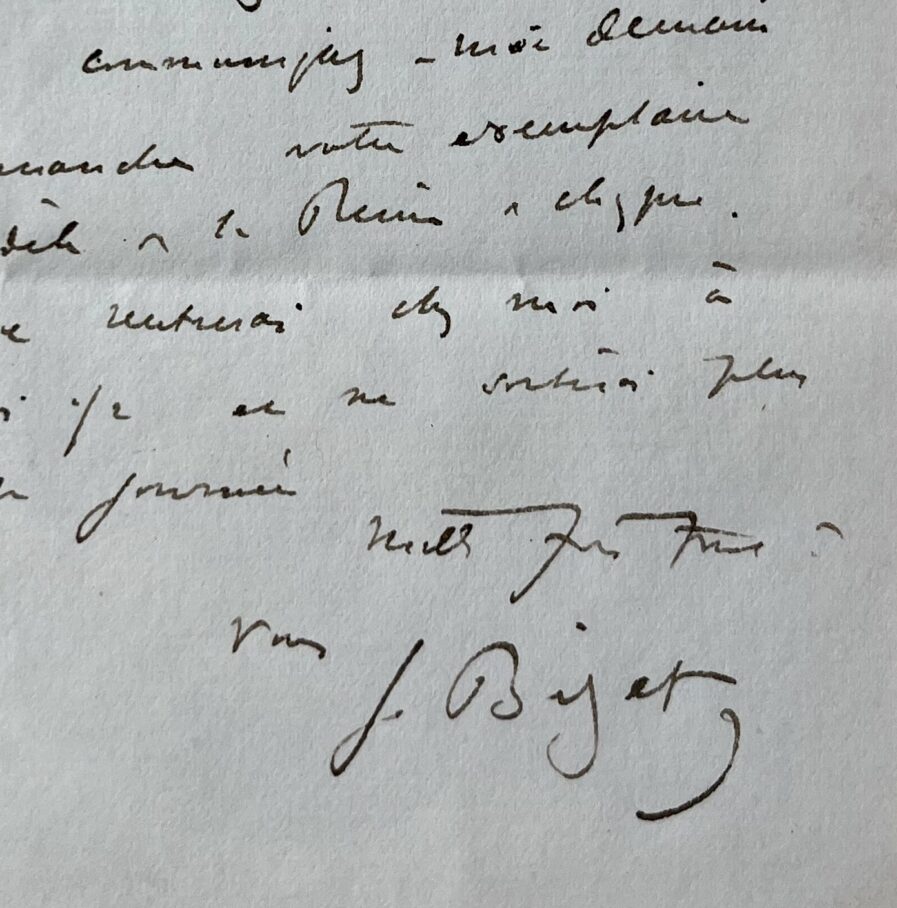 communiquez-moi demain
manche votre exemplaire
de la Reine de chypre.
rentrerai chez moi à
1/2 et ne sortirai plus
journée
Mille fois tout à
vous
G. Bizet